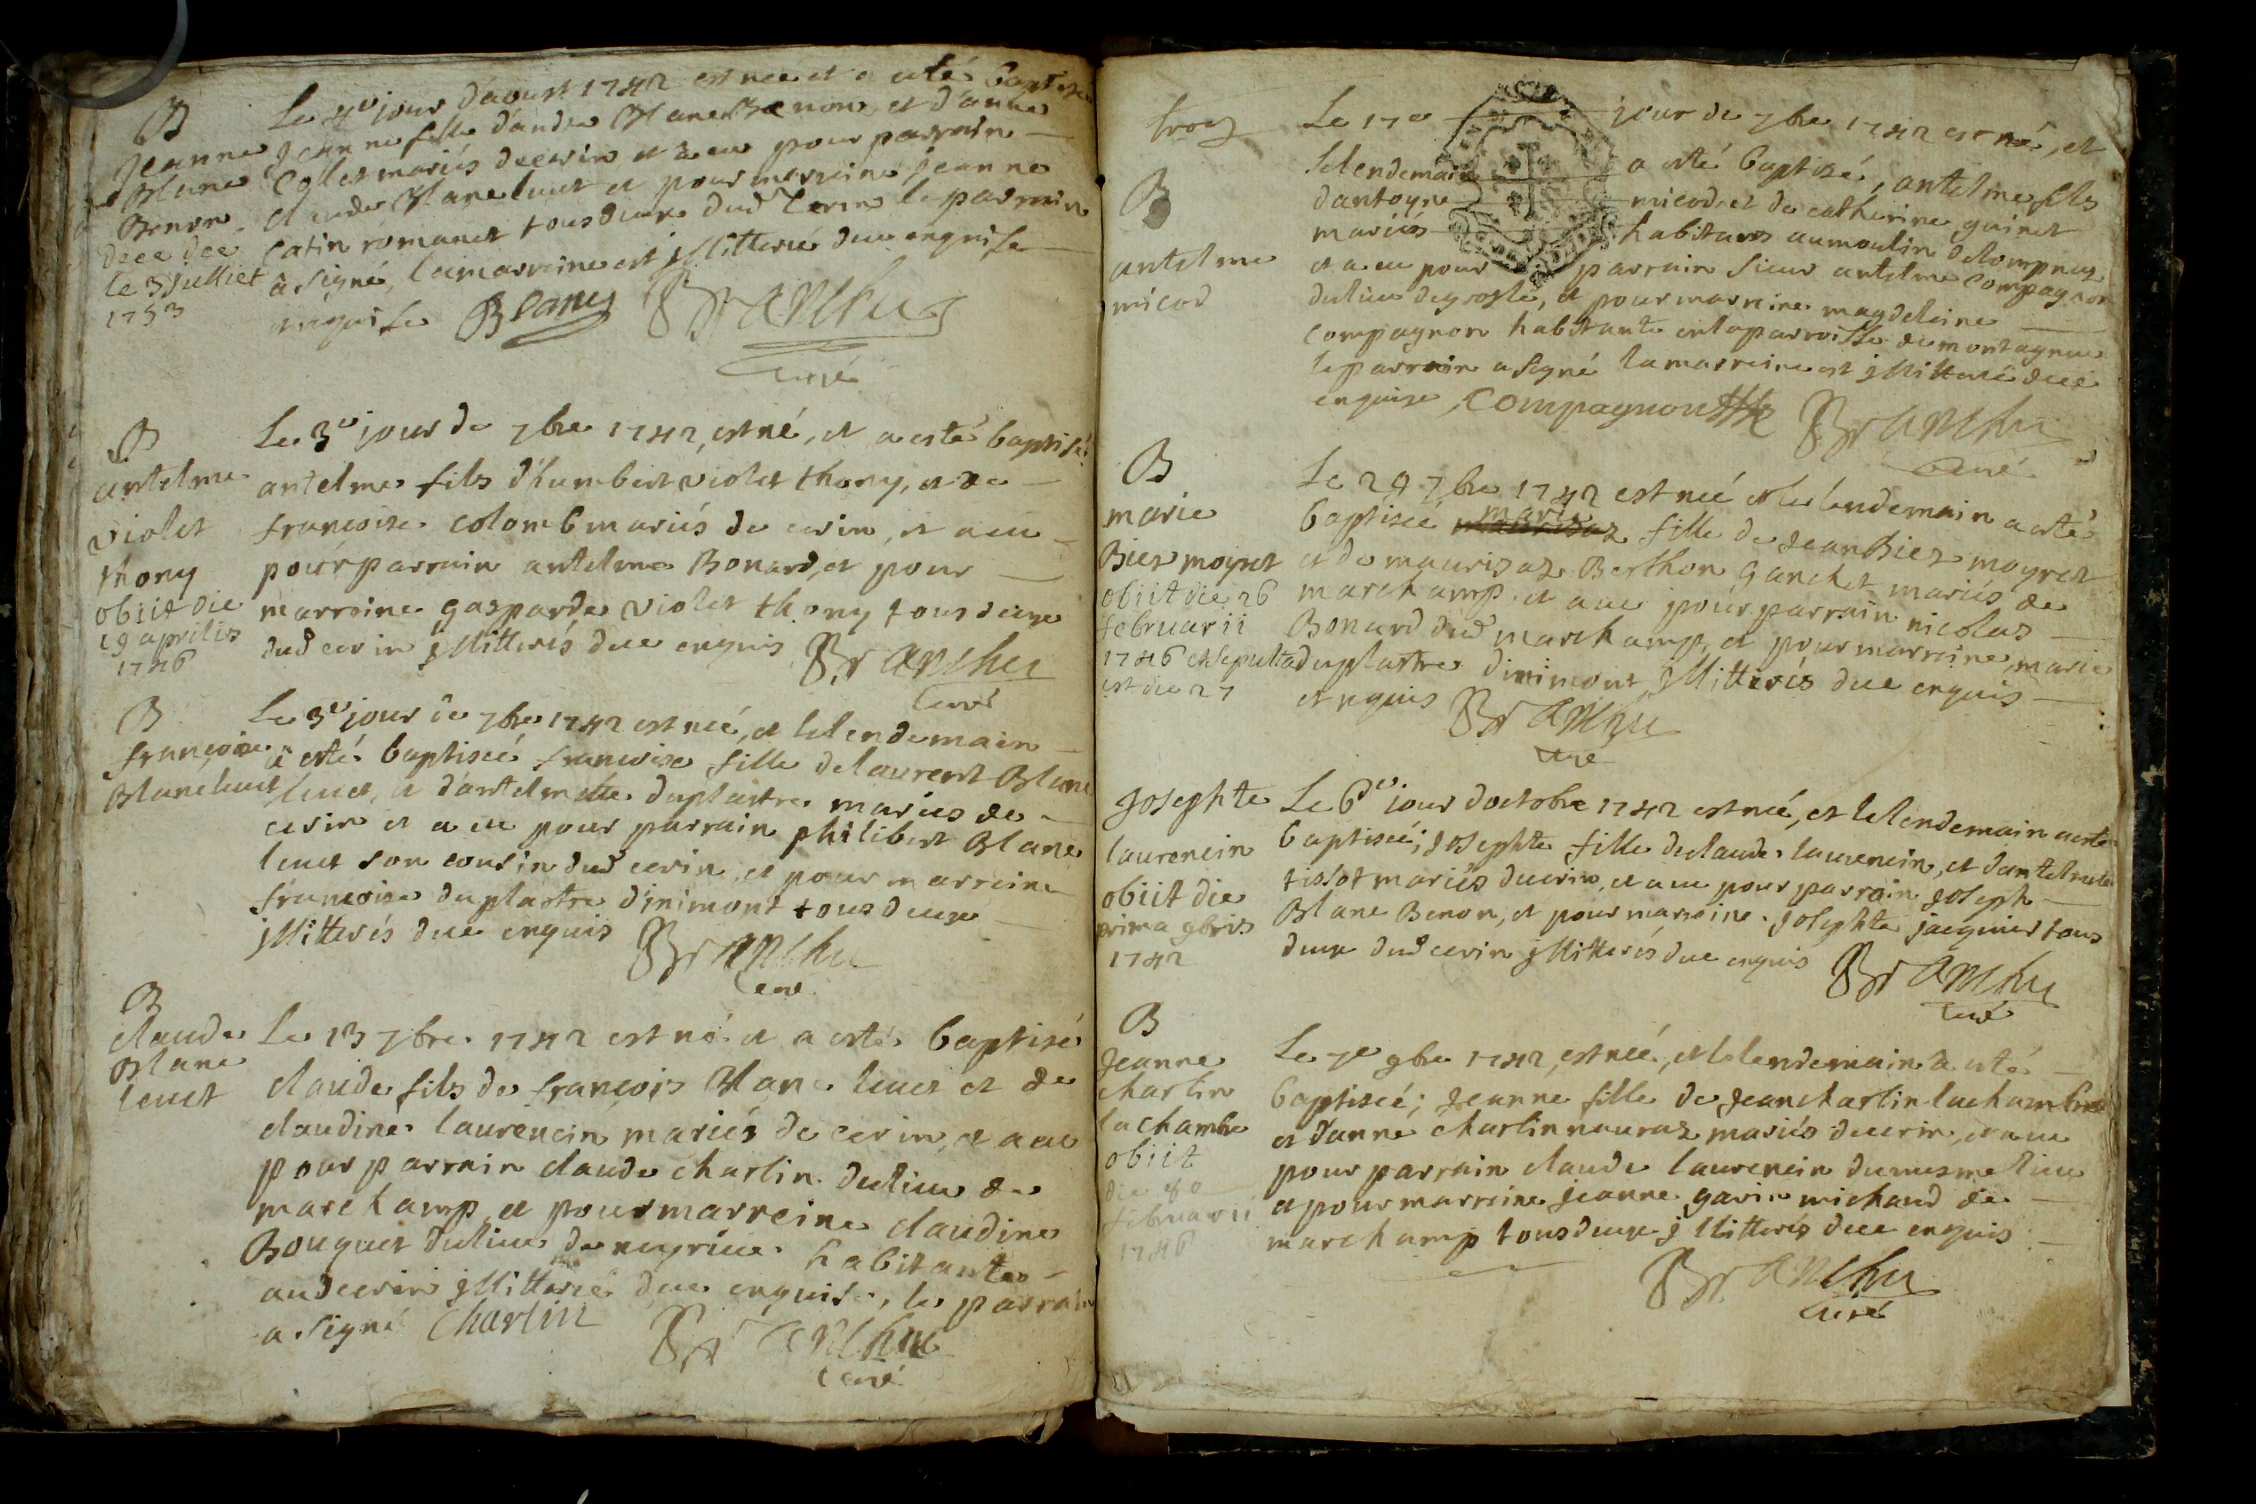 B
Jeanne
Blanc
Benon
decedee
le 3 Juilliet
1753
Le 4e jour d'aoust 1742 est née et a esté baptisée
Jeanne fille d'andré Blanc Benon, et d'anne
Collet mariés de cerin et a eu pour parrain
claude Blanc lieut et pour marreine jeanne
Catin romanet tous deux dud cerin le parrain
a signé, la marreine est jllitterée due enquise
enquise Blanc Branchu
curé
B
antelme
violet
thony
obiit die
19 aprilis
1746
Le 3e jour de 7bre 1742, est né, et a esté baptisé
antelme fils d'humbert violet thony, et de
francoise colomb mariés de cerin, et a eu
pour parrain antelme Bonard, et pour
marreine gasparde violet thony tous deux
dud cerin jllitterés due enquis Branchu
curé
B
francoise
Blanc lieut
Le 3e jour de 7bre 1742 est neé, et le lendemain
a esté baptiseé francoise fille de laurent Blanc
lieut, et d'antelmette duplastre mariés de
cerin et a eu pour parrain philibert Blanc
lieut son cousin dud cerin, et pour marreine
francoise duplastre d'inimont tous deux
jllitterés due enquis Branchu
curé
B
claude
Blanc
lieut
Le 13 7bre 1742 est né et a esté baptisé
claude fils de françois Blanc lieut et de
claudine laurencin mariés de cerin, et a eu
pour parrain claude charlin du lieu de
marchamp, et pour marreine claudine
Bouquet du lieu de habitante
aud cerin jllitterée due enquise, le parrain
a signé Charlin Branchu
curé
troiz
B
antelme
micod
Le 17e jour de 7bre 1742 est né, et
le lendemain a esté baptizé, antelme fils
d'antoyne micod et de catherine guinet
mariés habitans au moulin de lompnaz
et a eu pour parrain sieur antelme compagnon
du lieu de groslé, et pour marreine magdeleine
compagnon habitante en la parroisse de montagnieu
le parrain a signé la marreine est jllitterée due
enquise, Compagnon Branchu
curé
B
marie
Biez moyret
obiit die 26
februarii
1746 et sepulta
est die 27
Le 24 7bre 1742 est neé et le lendemain a esté
marie
baptiseé fille de jean Biez moyret
et de maurisaz Berthon ganchet mariés de
marchamp et a eu pour parrain nicolas
Bonard dud marchamp, et pour marreine, marie
duplastre d'inimont, jllitterés due enquis
enquis Branchu
curé
Josephte
laurencin
obiit die
prima 9bris
1742
Le 6e jour d'octobre 1742 est neé, et le lendemain a esté
baptiseé; josephte fille de claude laurencin, et d'antelmette
tissot mariés de cerin, et a eu pour parrain joseph
Blanc Benon, et pour marreine josephte jacquier tous
deux dud cerin jllitterés due enquis Branchu
curé
B
Jeanne
charlin
lachambre
obiit
die
februarii
1746
Le 7e 9bre 1742, est neé, et le lendemain a esté
baptiseé; jeanne fille de jean charlin lachambre
et d'anne charlin nauraz mariés de cerin, et a eu
pour parrain claude laurencin du mesme lieu
et pour marreine jeanne garin michaud de
marchamp tous deux jllitterés due enquis
Branchu
curé